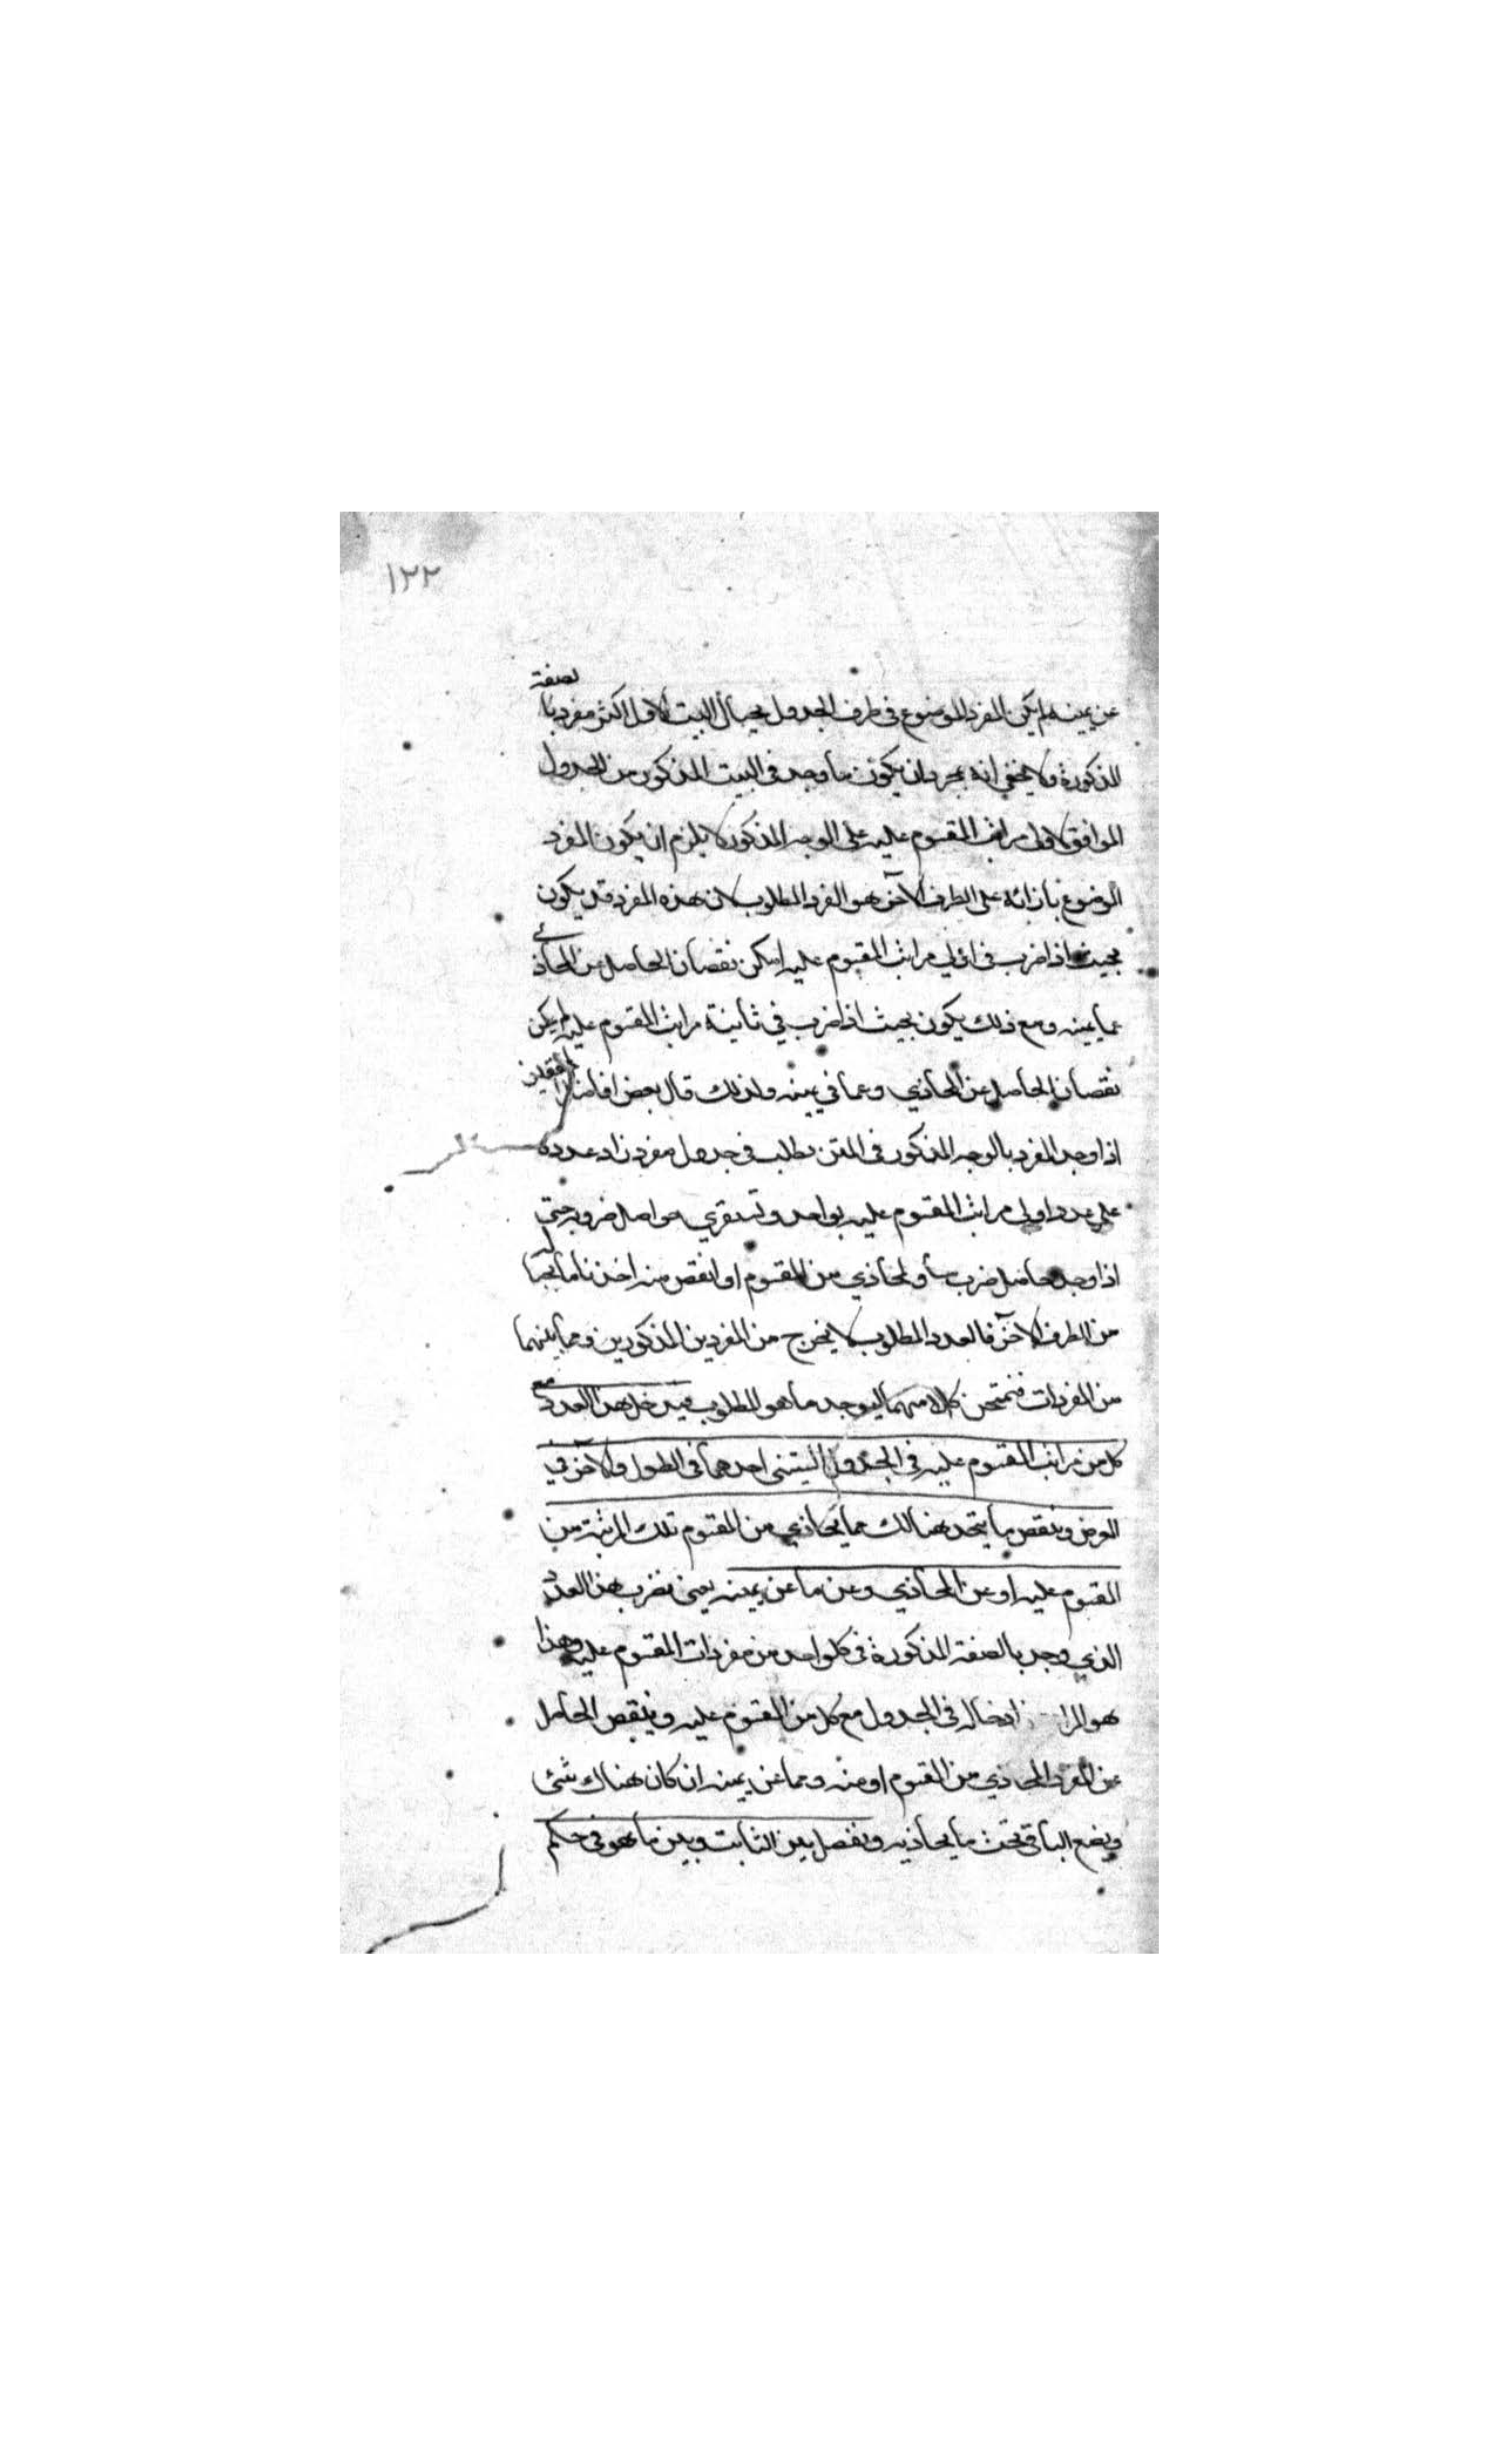 ١٢٢
عن يمينه لم يكن المفرد الموضوع في طرف الجدول بحيال البيت الاول اكثر مفرد بالصفة
المذكورة ولا يخفي انه بمجرد ان يكون ما وجد في البيت المذكور من الجدول
الموافق لاولى مراتب المقسوم عليه على الوجه المذكور لا يلزم ان يكون المفرد
الموضوع بازائه على الطرف الآخر هو المفرد المطلوب لان هذه المفرد قد يكون
بحيث اذا ضرب في اولي مراتب المقسوم عليه امكن نقصان الحاصل عن المحاذي
عما يمينه ومع ذلك يكون بحيث اذا ضرب في ثانية مراتب المقسوم عليه لم يكن
نقصان الحاصل عن المحاذي وعما في يمينه ولذلك قال بعض افاضل
اذا وجد المفرد بالوجه المذكور في المتن يطلب في جدول مفرد زاد عدده
علي عدد اولى مراتب المقسوم عليه بواحد وتستقري حواصل ضروبه حتي
اذا وجد حاصل ضرب ساو لمحاذي من المقسوم او انقص منه اخذنا ما بحياله
من الطرف الآخر فالعدد المطلوب لا يخرج من المفردين المذكورين وما بينهما
من المفردات فنمتحن كلا منهما ليوجد ما هو المطلوب فيدخل هذا العدد مع
كل من مراتب المقسوم عليه في الجدول الستيني احدهما في الطول والآخر في
العرض وينقص ما يتحد هنالك مما يحاذي من المقسوم تلك المرتبة من
المقسوم عليه او عن المحاذي وعن ما عن يمينه يعني نضرب هذا العدد
الذي وجد بالصفة المذكورة في كل واحد من مفردات المقسوم عليه وهذا
هو المراد ادخاله في الجدول مع كل من المقسوم عليه وينقص الحاصل
عن المفرد المحاذي من المقسوم او منه وعما عن يمينه ان كان هناك شئ
ويضع الباقي تحت ما يحاذيه ويفصل بين الثابت وبين ما هو في حكم